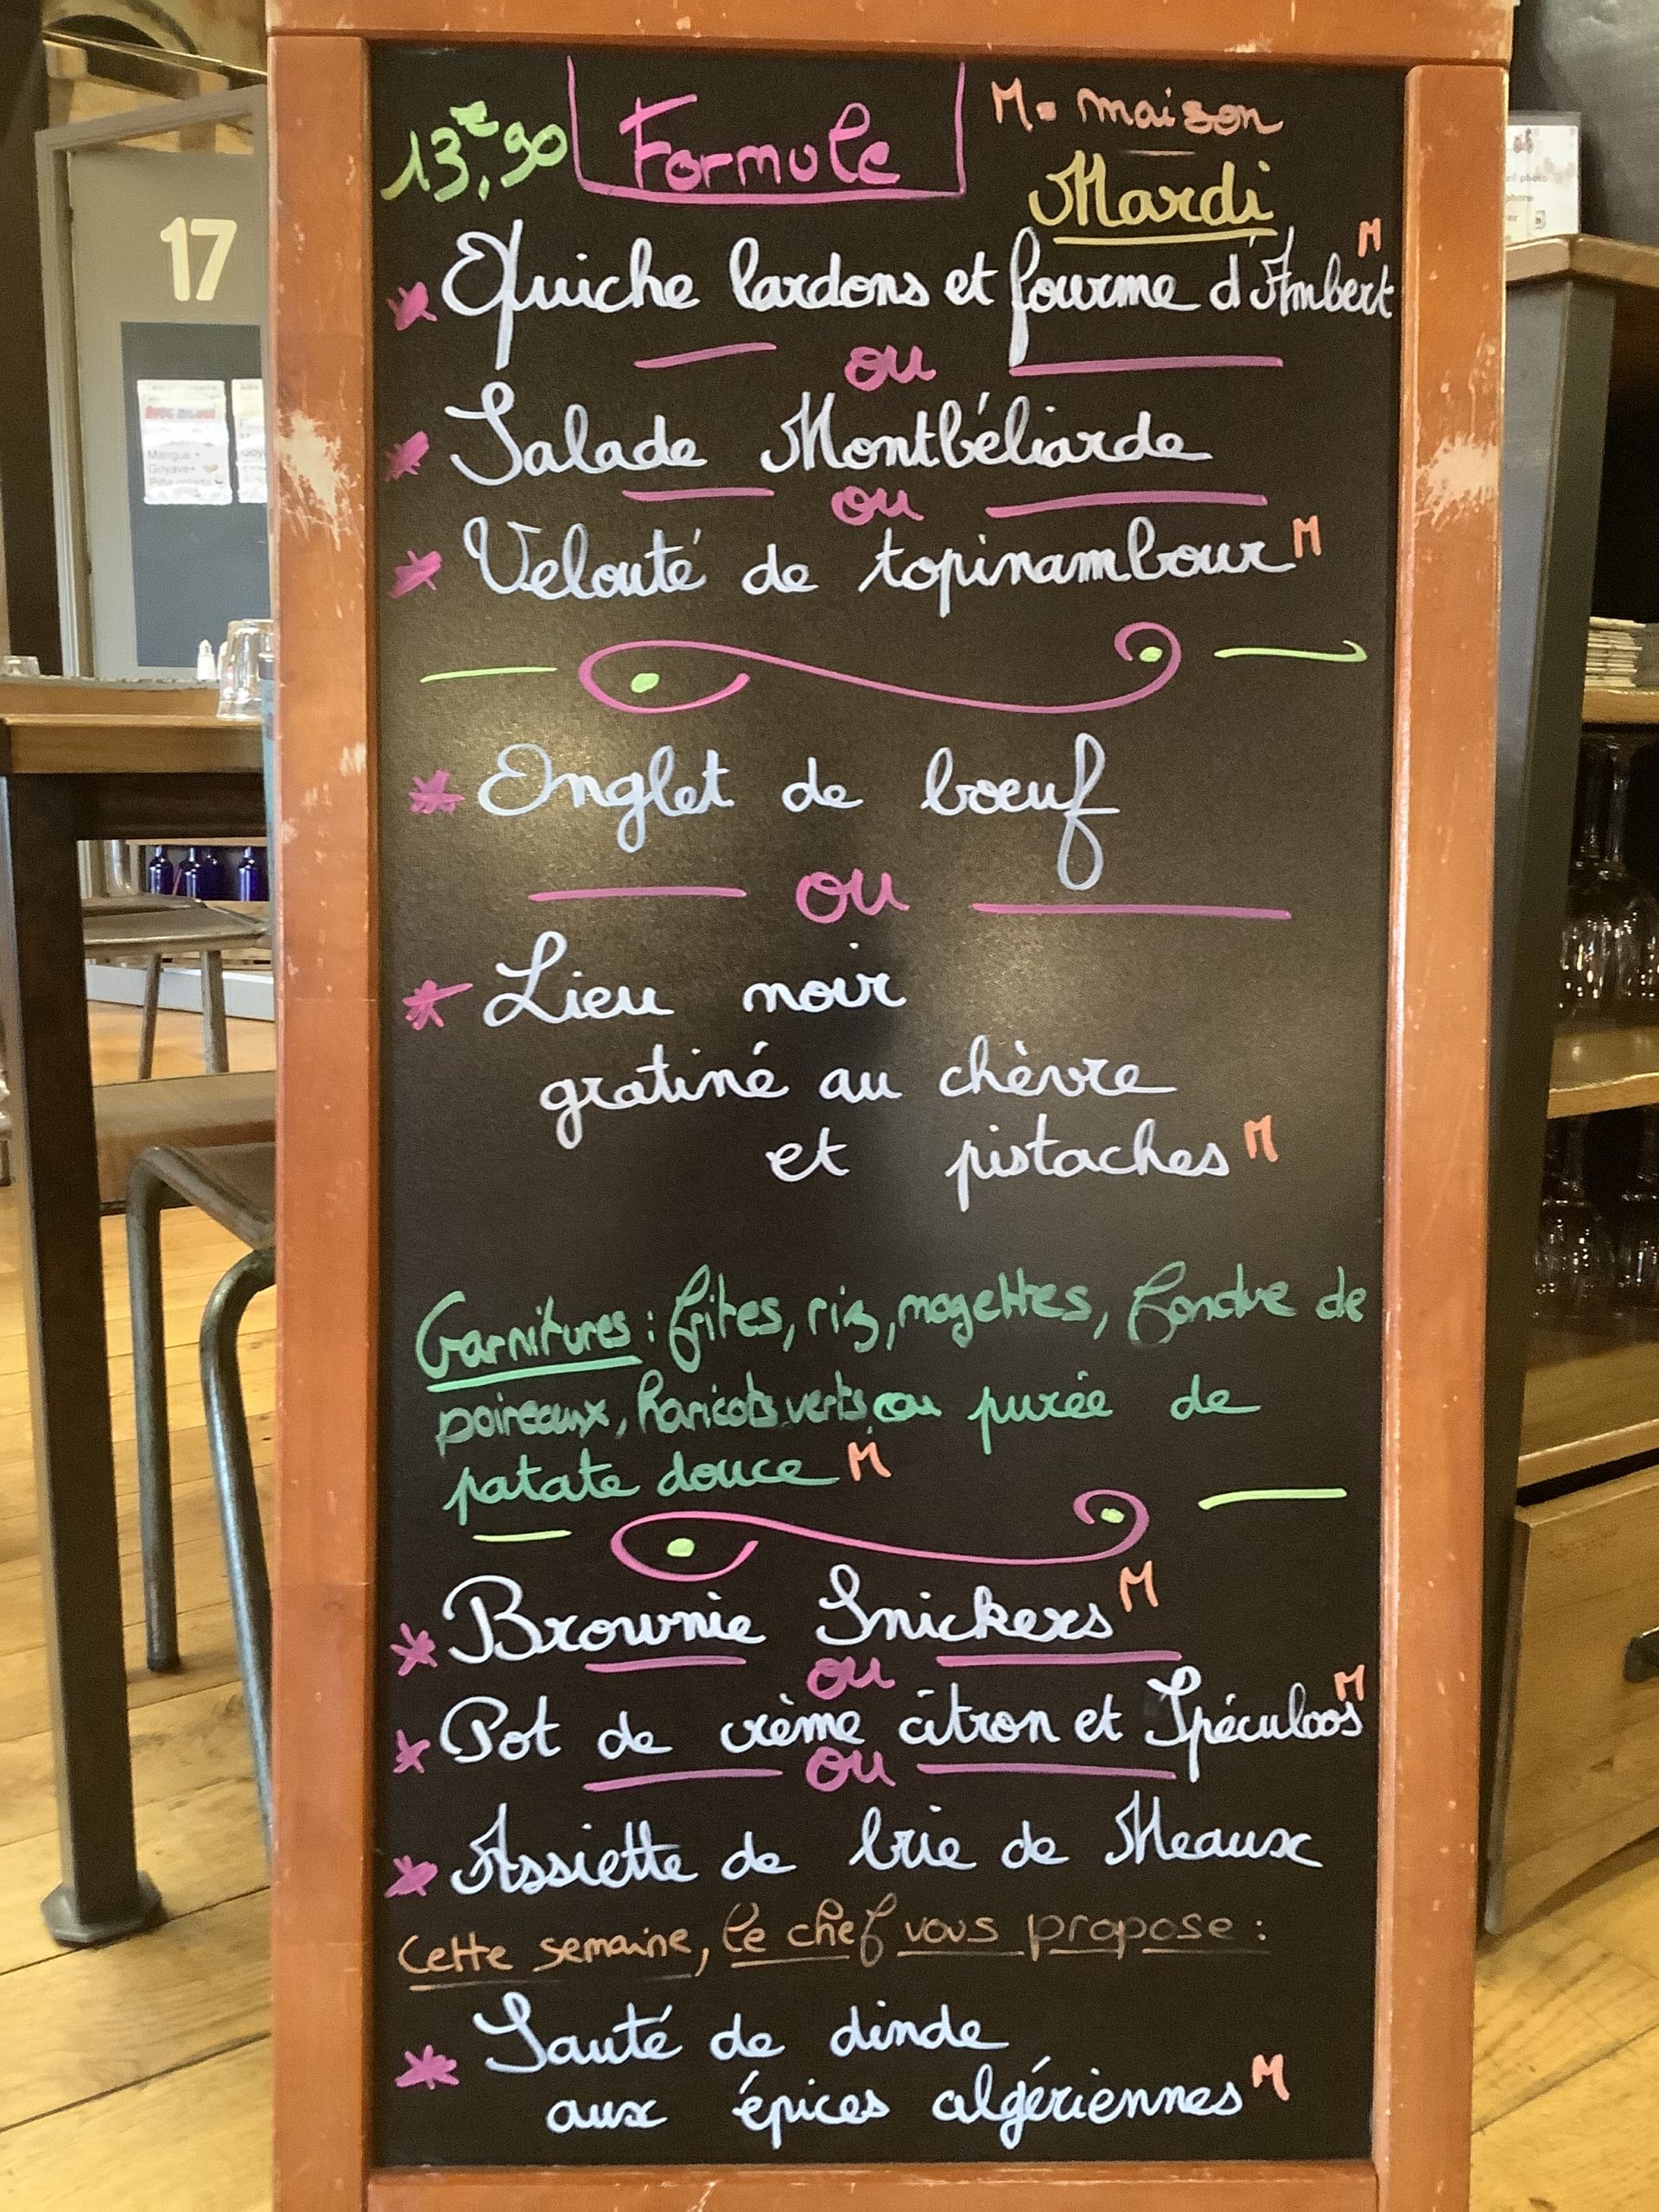 13€,90 Formule M = maison
Mardi
Quiche lardons et fourme d'Ambert M
ou
Salade Montbéliarde
ou
Velouté de topinambour M
Onglet de boeuf
ou
Lieu noir
gratiné au chèvre
et pistaches M
Garnitures : frites, riz, mogettes, fondue de
poireaux, haricots verts ou purée de
patate douce M
Brownie Snickers M
ou
Pot de crème citron et Spéculoos M
ou
Assiette de brie de Meaux
Cette semaine, le chef vous propose :
Sauté de dinde
aux épices algériennes M
17
Mangue +
Goyave+
Piña colada